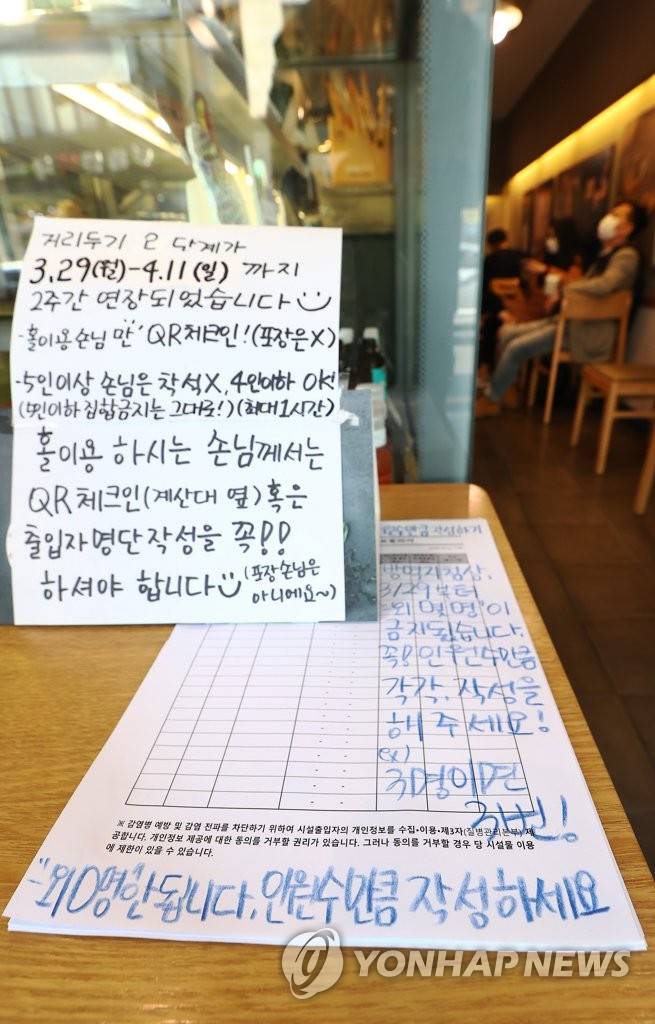 거리두기 2 단계가
3.29(월)-4.11(일) 까지
2주간 연장되었습니다
-홀이용손님 만 QR체크인!(포장은X)
-5인이상 손님은 착석X, 4인이하 OK!
(5인이하 집합금지는 그대로!)(최대1시간)
홀이용 하시는 손님께서는
QR체크인(계산대 옆)혹은
출입자명단작성을 꼭!!
하셔야 합니다(포장손님은
아니에요~)
작성하기
방역지침상,
3/29부터
"외 몇명"이
금지됩니다.
꼭! 인원수만큼
각각, 작성을
해 주세요!
ex)
3명이면
3번!
※ 감염병 예방 및 감염 전파를 차단하기 위하여 시설출입자의 개인정보를 수집·이용·제3자(질병관리본부) 제
공합니다. 개인정보 제공에 대한 동의를 거부할 권리가 있습니다. 그러나 동의를 거부할 경우 당 시설물 이용
에 제한이 있을 수 있습니다.
-"외0명"안됩니다. 인원수만큼 작성하세요
YONHAP NEWS